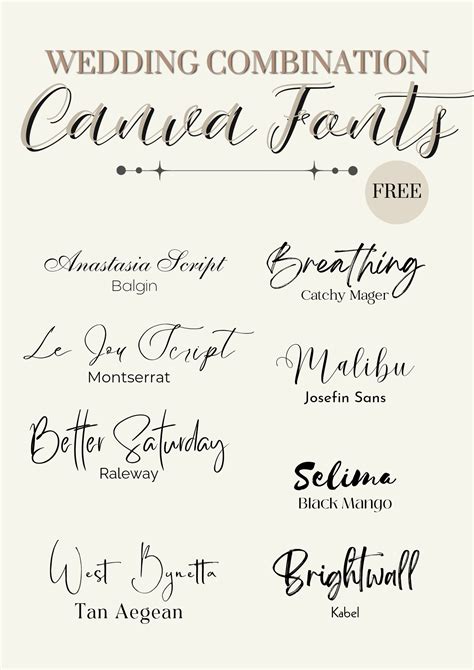 WEDDING COMBINATION
Canva Fonts
FREE
Anastasia Script
Balgin
Breathing
Catchy Mager
Le Jou Script
Montserrat
Malibu
Josefin Sans
Better Saturday
Raleway
Selima
Black Mango
West Bynetta
Tan Aegean
Brightwall
Kabel